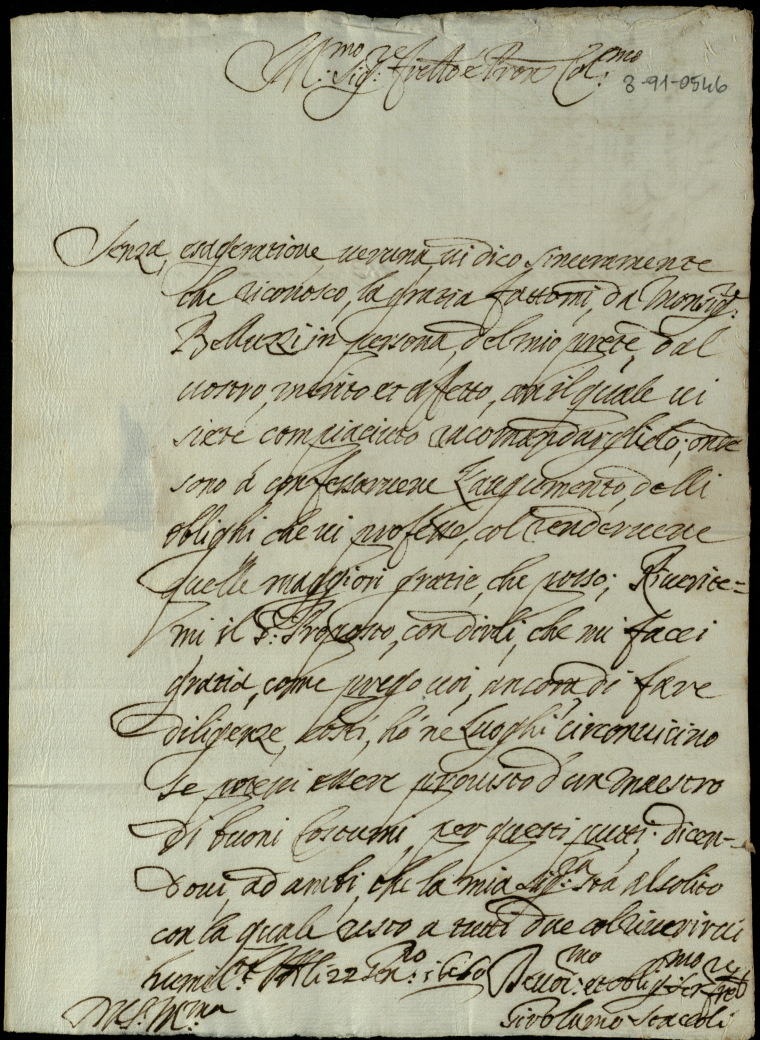 M.mo Sig.re fratello e Pron Col.mo
3-91-0546
Senza esageratione veruna vi dico sinceramente
che riconosco, la gratia fattami, da Monsig.r
Belluzzi in persona, del mio prete, dal
vostro, merito et affetto, con il quale vi
siete compiaciuto racomandarglielo, onde
sono a confessarvene l'augumento, delli
oblighi che vi professo, col rendervene
quelle maggiori gratie, che posso; Riverite=
mi il S.r Proposto, con dirli, che mi facci
gratia, come prego voi, ancora di fare
diligenze, costì, hò ne luoghi circonvicino
se potessi essere provisto d'un maestro
di buoni costumi, per questi putti. dicen-
dovi, ad ambi, che la mia Sig.ra stà al solito
con la quale resto a tutti due col riverirvi
humil.te li 22 Gen.ro 1660
Devot.mo et oblig.mo Ser.re
Girolamo Staccoli